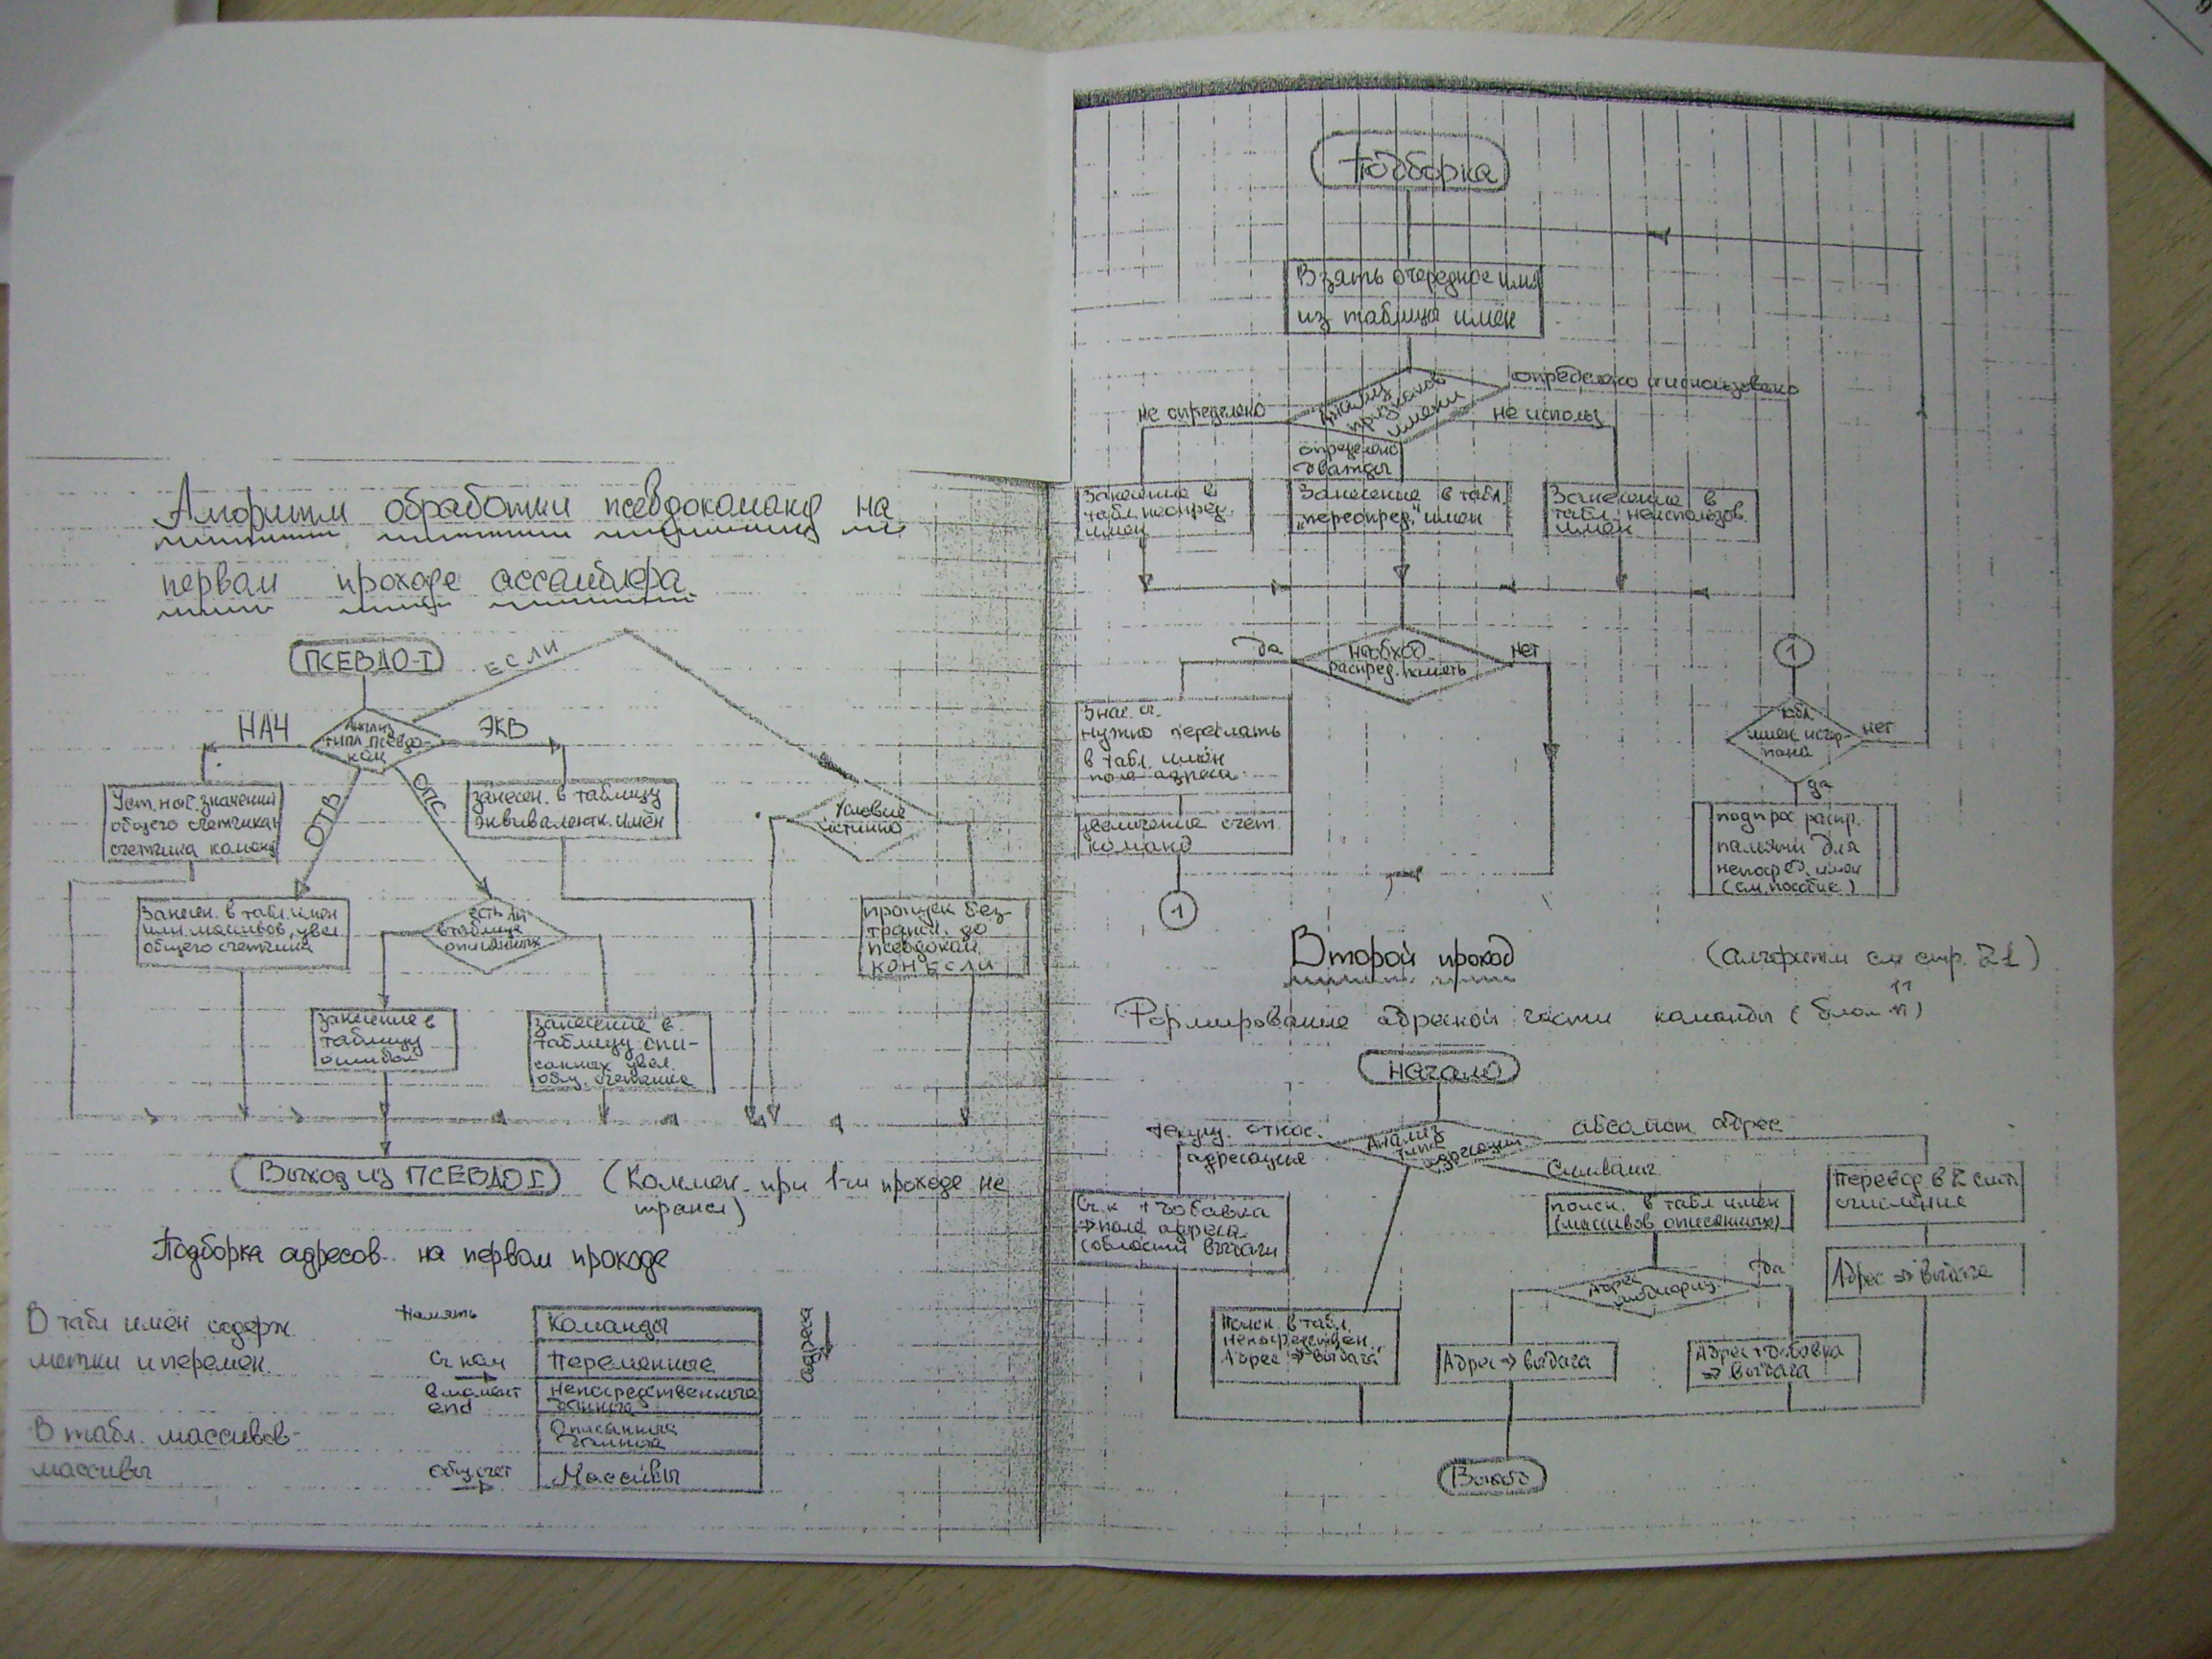 Алгоритм обработки псевдокоманд на
первом проходе ассемблера
ПСЕВДО-I
ЕСЛИ
НАЧ
Анализ
типа псевдо-
ком
ЭКВ
ОТВ
ОПС
Уст. нач. значений
общего счетчика и
счетчика команд
занесен. в таблицу
эквивалентн. имён
Условие
истинно
Занесен. в табл. имён
или массивов, увел.
общего счетчика
есть ли
в таблице
описанных
пропуск без
трансл. до
псевдоком.
КОНЕСЛИ
занесение в
таблицу
ошибок
занесение в
таблицу опи-
санных увел.
общ. счетчика
Выход из ПСЕВДО I
(Коммен. при 1-м проходе не
трансл)
Подборка адресов на первом проходе
В табл имён содерж.
метки и перемен.
В табл. массивов-
массивы
Память
Сч ком
в момент
end
Общ. счет
Команды
Переменные
непосредственные
данные
Описанные
данные
Массивы
адреса
Подборка
Взять очередное имя
из таблицы имён
Анализ
признаков
имени
определено и использовано
не определено
не использ
определено
дважды
Занесение в
табл. неопред.
имен
Занесение в табл.
"переопред." имен
Занесение в
табл. неиспользов.
имен
да
необход.
распред. память
нет
Знач. сч.
нужно переслать
в табл. имён
поле адреса
увеличение счет.
команд
1
1
табл.
имен исчер-
пана
нет
да
подпрог распр.
памяти для
непоср. имен
(см. пособие)
Второй проход
(алгоритм см стр. 21)
Формирование адресной части команды (блок "п")
Начало
Текущ. относ.
адресация
Анализ
типа
адресации
абсолют. адрес
Символич.
Сч.к + добавка
⇒ поле адреса
области выдачи
поиск. в табл имен
(массивов, описанных)
Перевод в 2 сист.
счисления
Адрес
модифициr.
да
Адрес ⇒ выдача
Поиск. в табл.
непосредствен.
Адрес ⇒ выдача
Адрес ⇒ выдача
Адрес + добавка
⇒ выдача
Выход